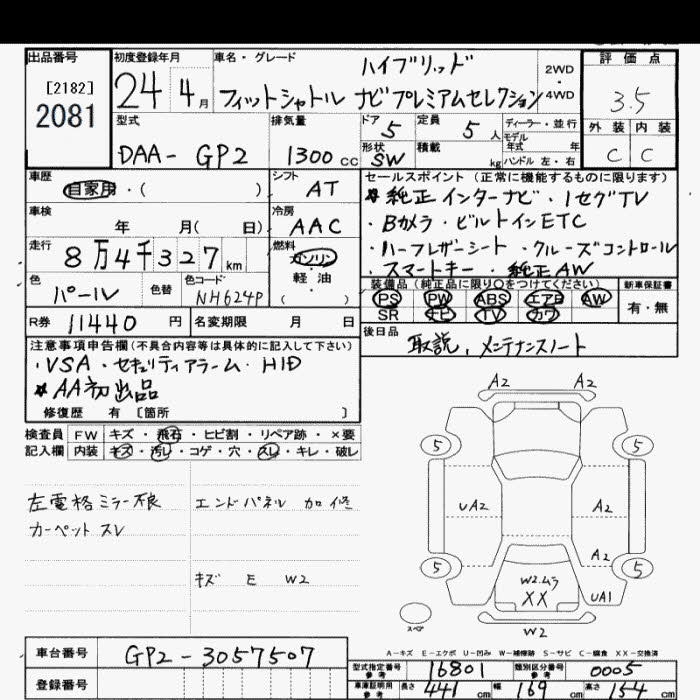 出品番号 初度登録年月 車名・グレード 評価点
[2182]
2081
24 4月
ハイブリッド
フィットシャトル ナビプレミアムセレクション
2WD
・
4WD
3.5
型式 排気量 ドア 定員 ディーラー・並行
DAA-GP2 1300cc 5 5人
モデル
年式 年
形状 SW 積載 kg ハンドル 左・右
外装 内装
C C
車歴 シフト
自家用・( ) AT
セールスポイント(正常に機能するものに限ります)
純正インターナビ・1セグTV
車検 冷房
年 月( 日) AAC
・Bカメラ・ビルトインETC
走行 燃料
8万4千327km
ガソリン
軽油
( )
・ハーフレザーシート・クルーズコントロール
・スマートキー・純正AW
色 色替 色コード
パール NH624P
装備品(純正品に限り○をつけてください) 新車保証書
PS PW ABS エアB AW
SR ナビ TV カワ
有・無
R券 11440円 名変期限 月 日
後日品 取説、メンテナンスノート
注意事項申告欄(不具合内容等は具体的に記入して下さい)
・VSA・セキュリティアラーム・HID
AA初出品
修復歴 有 [箇所 ]
検査員 FW キズ・飛石・ヒビ割・リペア跡・×要
記入欄 内装 キズ・汚レ・コゲ・穴・スレ・キレ・破レ
左電格ミラー不良 エンドパネル加修
カーペットスレ
キズ E W2
A2 A2
5 5
UA2 A2
A2
5 5
W2.ムラ
XX
UA1
スペア
W2
A-キズ E-エクボ U-凹み W-補修跡 S-サビ C-腐食 XX-交換済
車台番号 GP2-3057507
型式指定番号 参考 16801 類別区分番号 参考 0005
登録番号
車庫証明用 参考 長さ 441cm 幅 169cm 高さ 154cm